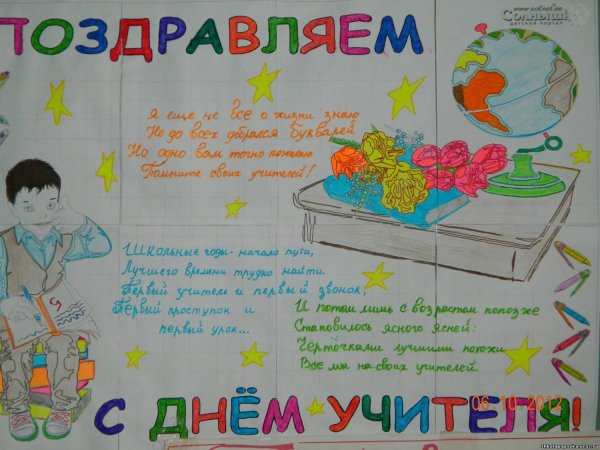 www.solnet.ee
Солнышко
детский портал
ПОЗДРАВЛЯЕМ
Я еще не все о жизни знаю
Не до всех добрался Букварей
Но одно вам точно пожелаю
Помните своих учителей!
Школьные годы - начало пути,
Лучшего времени трудно найти
Первый учитель и первый звонок,
Первый проступок и
первый урок...
И потом лишь с возрастом попозже
Становилось ясного ясней:
Чёрточками лучшими похожи
Все мы на своих учителей.
С ДНЁМ УЧИТЕЛЯ!
06.10.2012